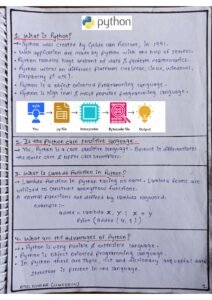 python
1. What is Python?
→ Python was created by Guido van Rossum, in 1991.
→ Web application are made by python with the help of servers.
→ Python handles huge amount of data & perform mathematics.
→ Python works on different platform (windows, Linux, Windows,
Raspberry Pi etc).
→ Python is a object oriented programming language.
→ Python is high level & most popular programming language.
You
.py file
Interpreter
Bytecode file
Output
2. Is the Python case sensitive language.
→ Yes, Python is a case sensitive language. Because it differentiates
the lower case & upper case characters.
3. What is Lambda function in Python?
→ Lambda function in Python having no name. Lambda forms are
utilized to construct anonymous functions.
→ Normal functions are defined by lambda keyword.
Example :-
adder = lambda x, y : x + y
Print (adder (4, 4))
4. What are the advantages of Python?
→ Python is very probable & extensive language.
→ Python is object oriented programming language.
→ In Python there are Tuple, list and dictionary and useful data
structure is present in the language.